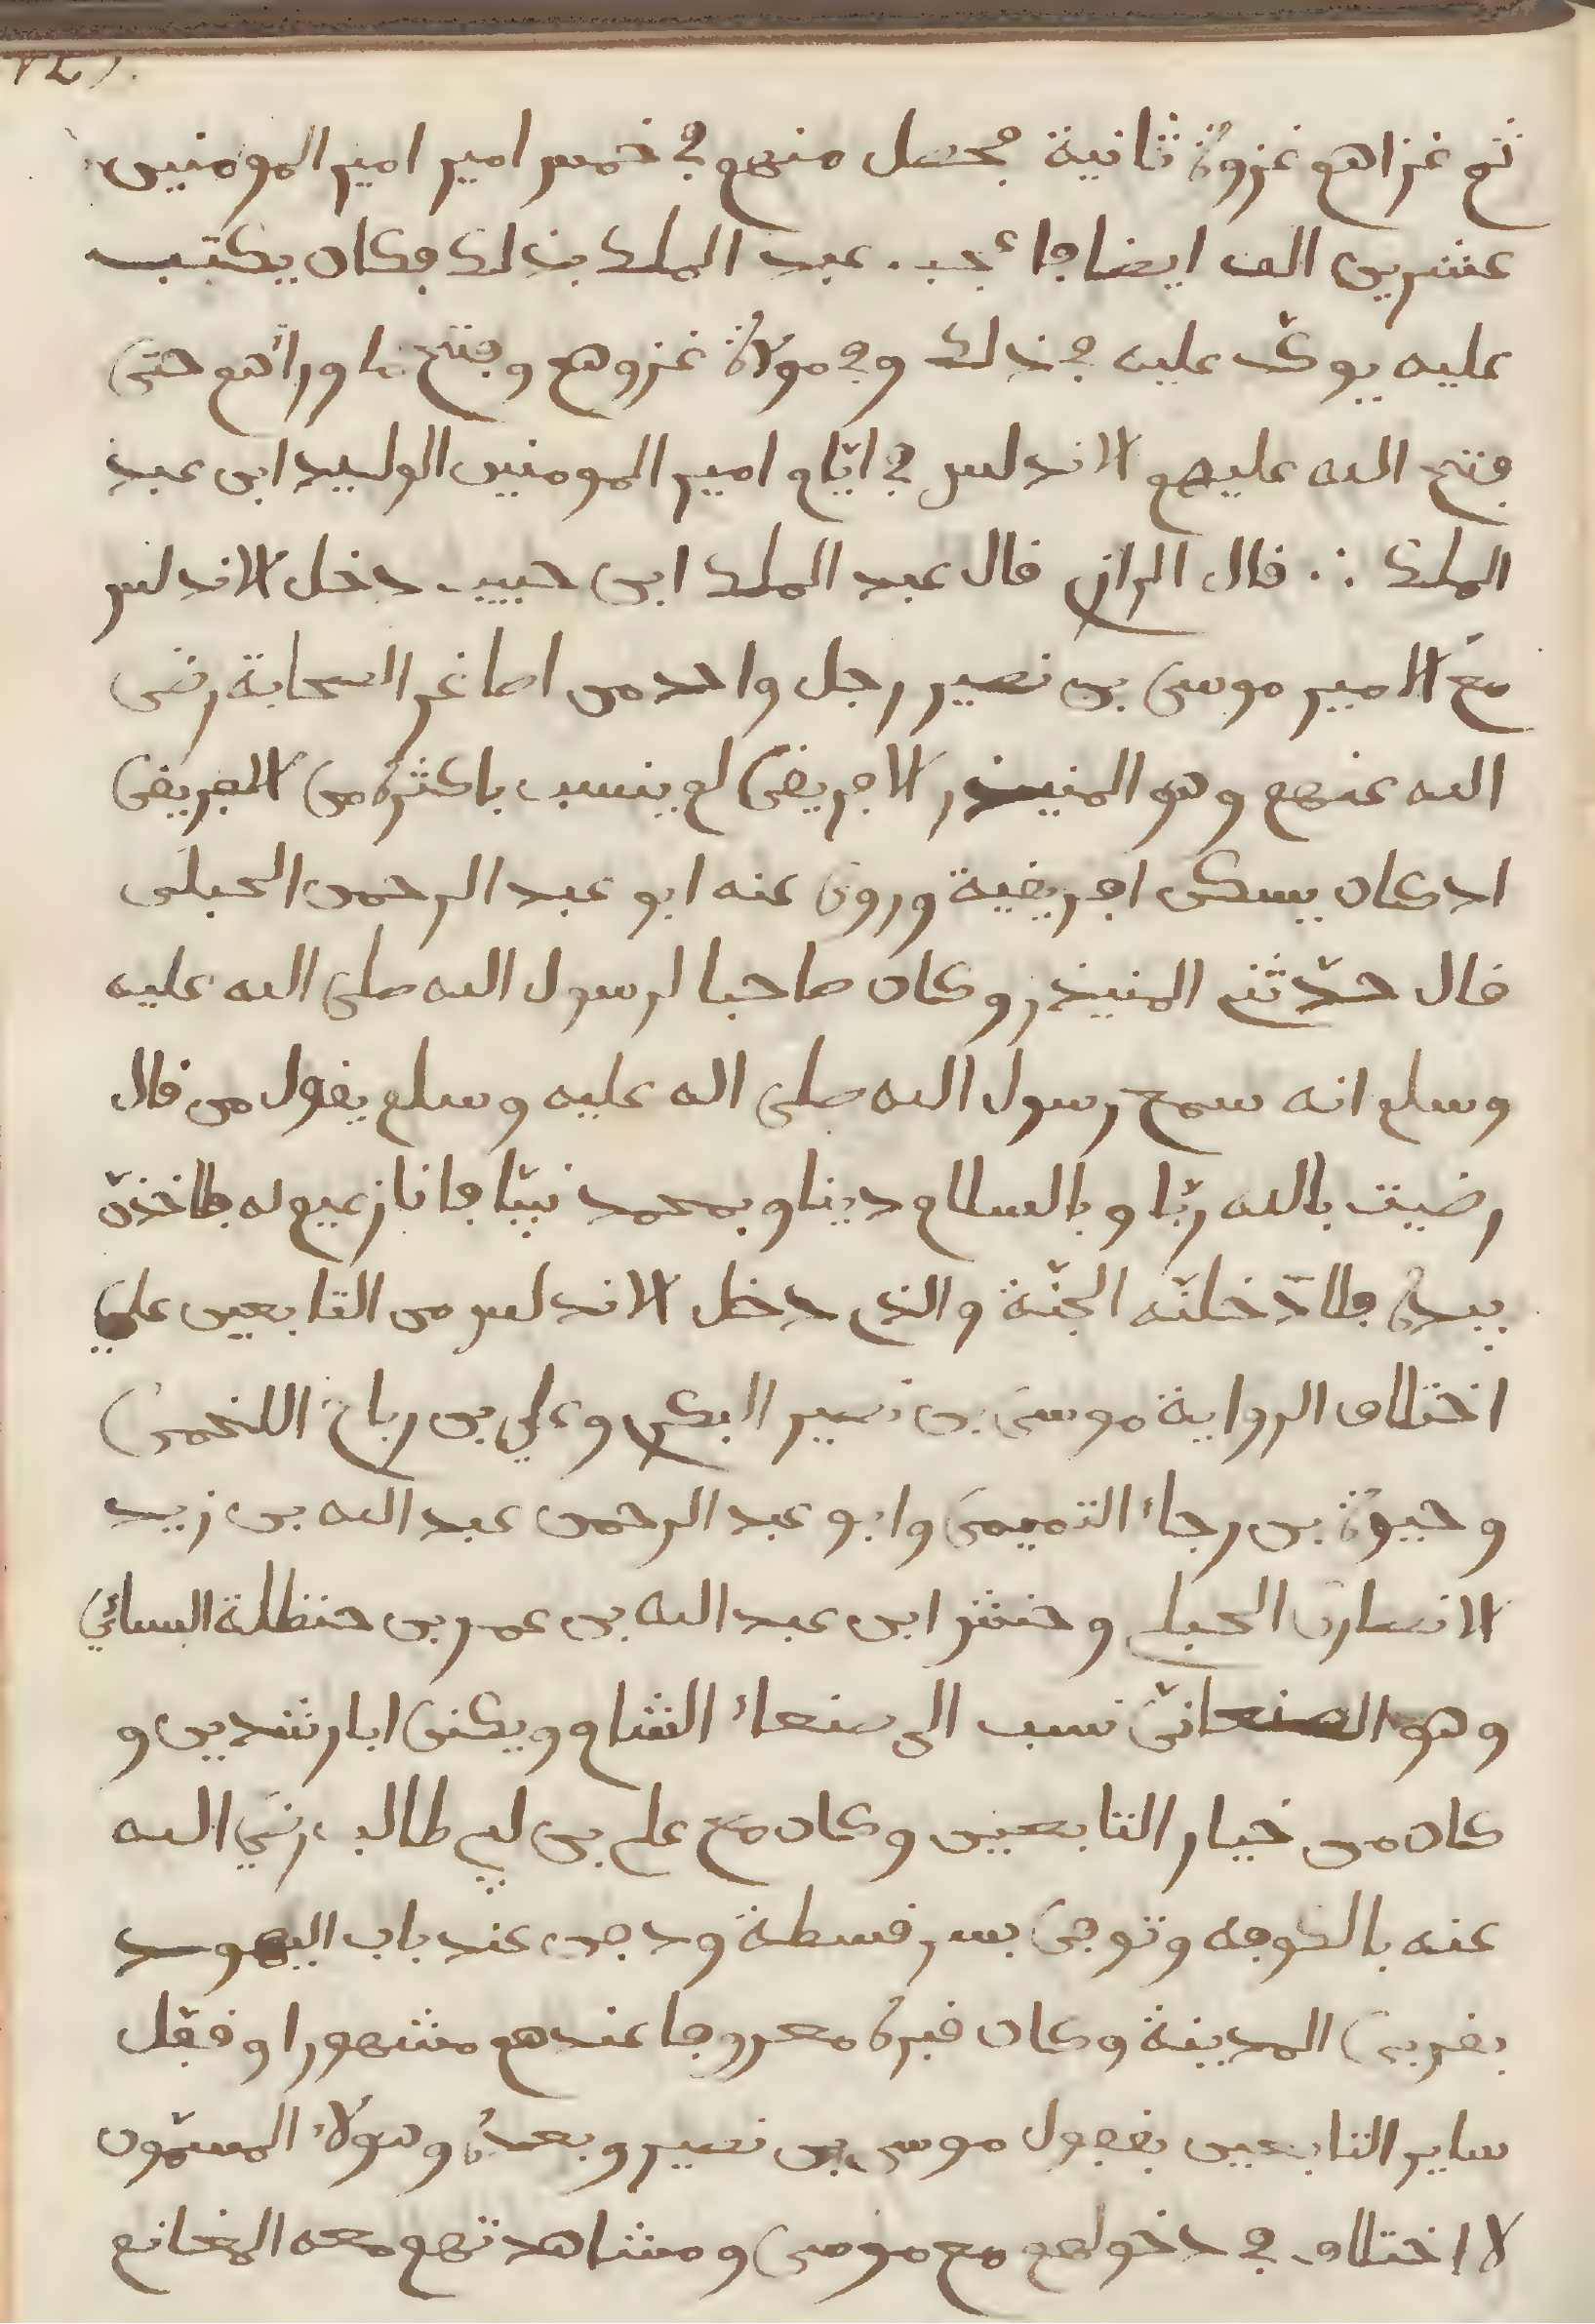 ثم غزاهم غزوة ثانية فحصل منهم في خمس امير امير المومنين
عشرين الف ايضا فاعجب عبد الملك بذلك فكان يكتب
عليه يوكد عليه في ذلك وفي موالاة غزوهم وفتح ما ورائهم حتى
فتح الله عليهم الاندلس في ايّام امير المومنين الوليد ابن عبد
الملك ∴ قال الرازي قال عبد الملك ابن حبيب دخل الاندلس
مع الامير موسى بن نصير رجل واحد من اصاغر الصحابة رضى
الله عنهم وهو المنيذر الافريقى لم ينسب باكثر من الافريقى
اد كان يسكن افريقية وروى عنه ابو عبد الرحمن الحبلى
قال حدّثني المنيذر وكان صاحبا لرسول الله صلى الله عليه
وسلم انه سمع رسول الله صلى اله عليه وسلم يقول من قال
رضيت بالله ربّا وبالسلام دينا وبمحمد نبيّا فانا زعيم له فلاخذنّ
بيده فلادّخلنّه الجنّة والذي دخل الاندلس من التابعين علي
اختلاف الرواية موسى بن نصير البكري وعلي بن رباح اللخمى
وحيوة بن رجاء التميمى وابو عبد الرحمن عبد الله بن زيد
الانصارى الحبلي وحنش ابن عبد الله بن عمر بن حنظلة السبائي
وهو الصنعانىّ نسب الى صنعاء الشام ويكنى ابا رشدين و
كان من خيار التابعين وكان مع علي بن ابي طالب رضي الله
عنه بالكوفه وتوفى بسرقسطة ودفن عند باب اليهود
بغربى المدينة وكان قبره معروفا عندهم مشهورا وقفل
ساير التابعين بقفول موسى بن نصير وبعده وهولاء المسمّون
لا اختلاف في دخولهم مع موسى ومشاهدتهم معه المغانم